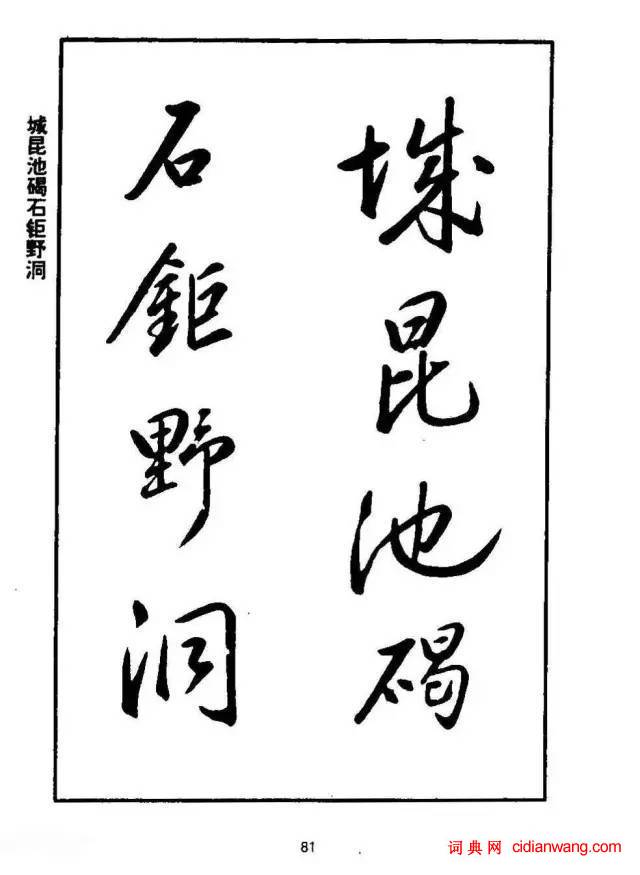 城昆池碣
石钜野洞
城昆池碣石钜野洞
81
词典网 cidianwang.com